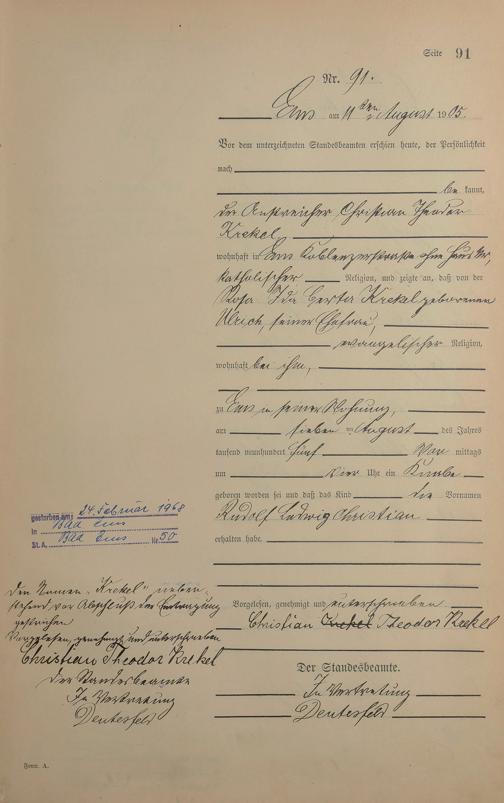 Seite 91
Nr. 91.
Ems am 11ten August 1905.
Vor dem unterzeichneten Standesbeamten erschien heute, der Persönlichkeit
nach
be kannt,
der Anstreicher Christian Theodor
Krekel,
wohnhaft in Ems Koblenzerstraße ohne Haus Nr,
katholischer Religion, und zeigte an, daß von der
Rosa Ida Gerta Krekel geborenen
Ulrich, seiner Ehefrau,
evangelischer Religion,
wohnhaft bei ihm,
zu Ems in seiner Wohnung,
am sieben ten August des Jahres
tausend neunhundert fünf Vor mittags
um vier Uhr ein Knabe
geboren worden sei und daß das Kind die Vornamen
Rudolf Ludwig Christian
erhalten habe.
gestorben am: 24. Februar 1968
in Bad Ems
St. A. Bad Ems Nr. 50
Vorgelesen, genehmigt und unterschrieben
Christian Krekel Theodor Krekel
Der Standesbeamte.
In Vertretung
Deutesfeld
Den Namen „Krekel“ neben-
stehend vor Abschluß der Eintragung
gestrichen
Vorgelesen, genehmigt und unterschrieben
Christian Theodor Krekel
Der Standesbeamte
In Vertretung
Deutesfeld
Form. A.